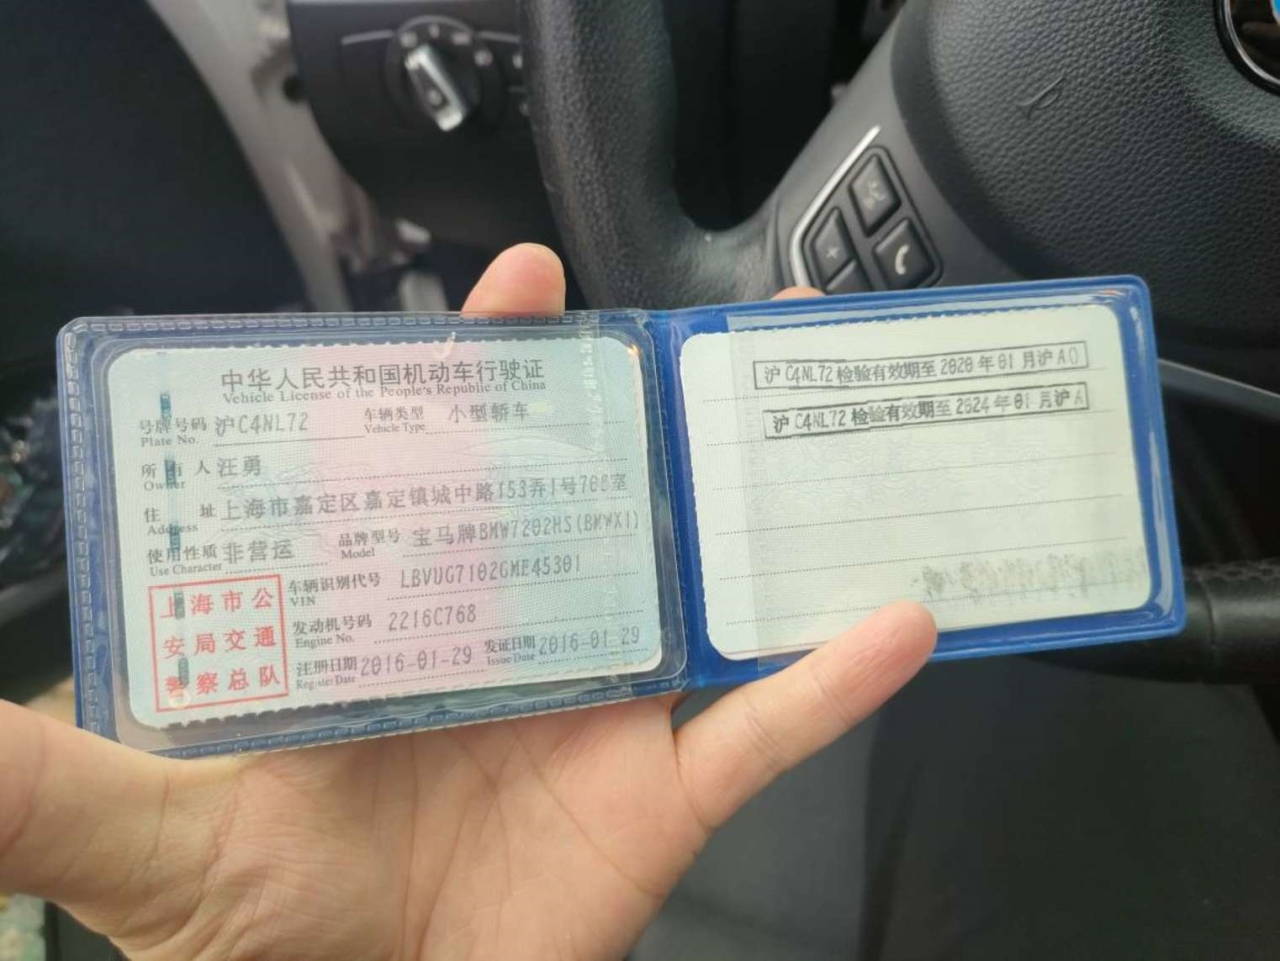 中华人民共和国机动车行驶证
Vehicle License of the People's Republic of China
号牌号码 沪C4NL72 车辆类型 小型轿车
Plate No. Vehicle Type
所有人 汪勇
Owner
住址 上海市嘉定区嘉定镇城中路153弄1号
室
Address
使用性质 非营运 品牌型号 宝马牌BMW7202HS(BMWX1)
Use Character Model
车辆识别代号 LBVUG7102GME45301
VIN
发动机号码 2216C768
Engine No.
注册日期 2016-01-29 发证日期 2016-01-29
Register Date Issue Date
上海市公
安局交通
警察总队
沪C4NL72 检验有效期至 2020 年 01 月沪A0
沪C4NL72 检验有效期至 2024 年 01 月沪A